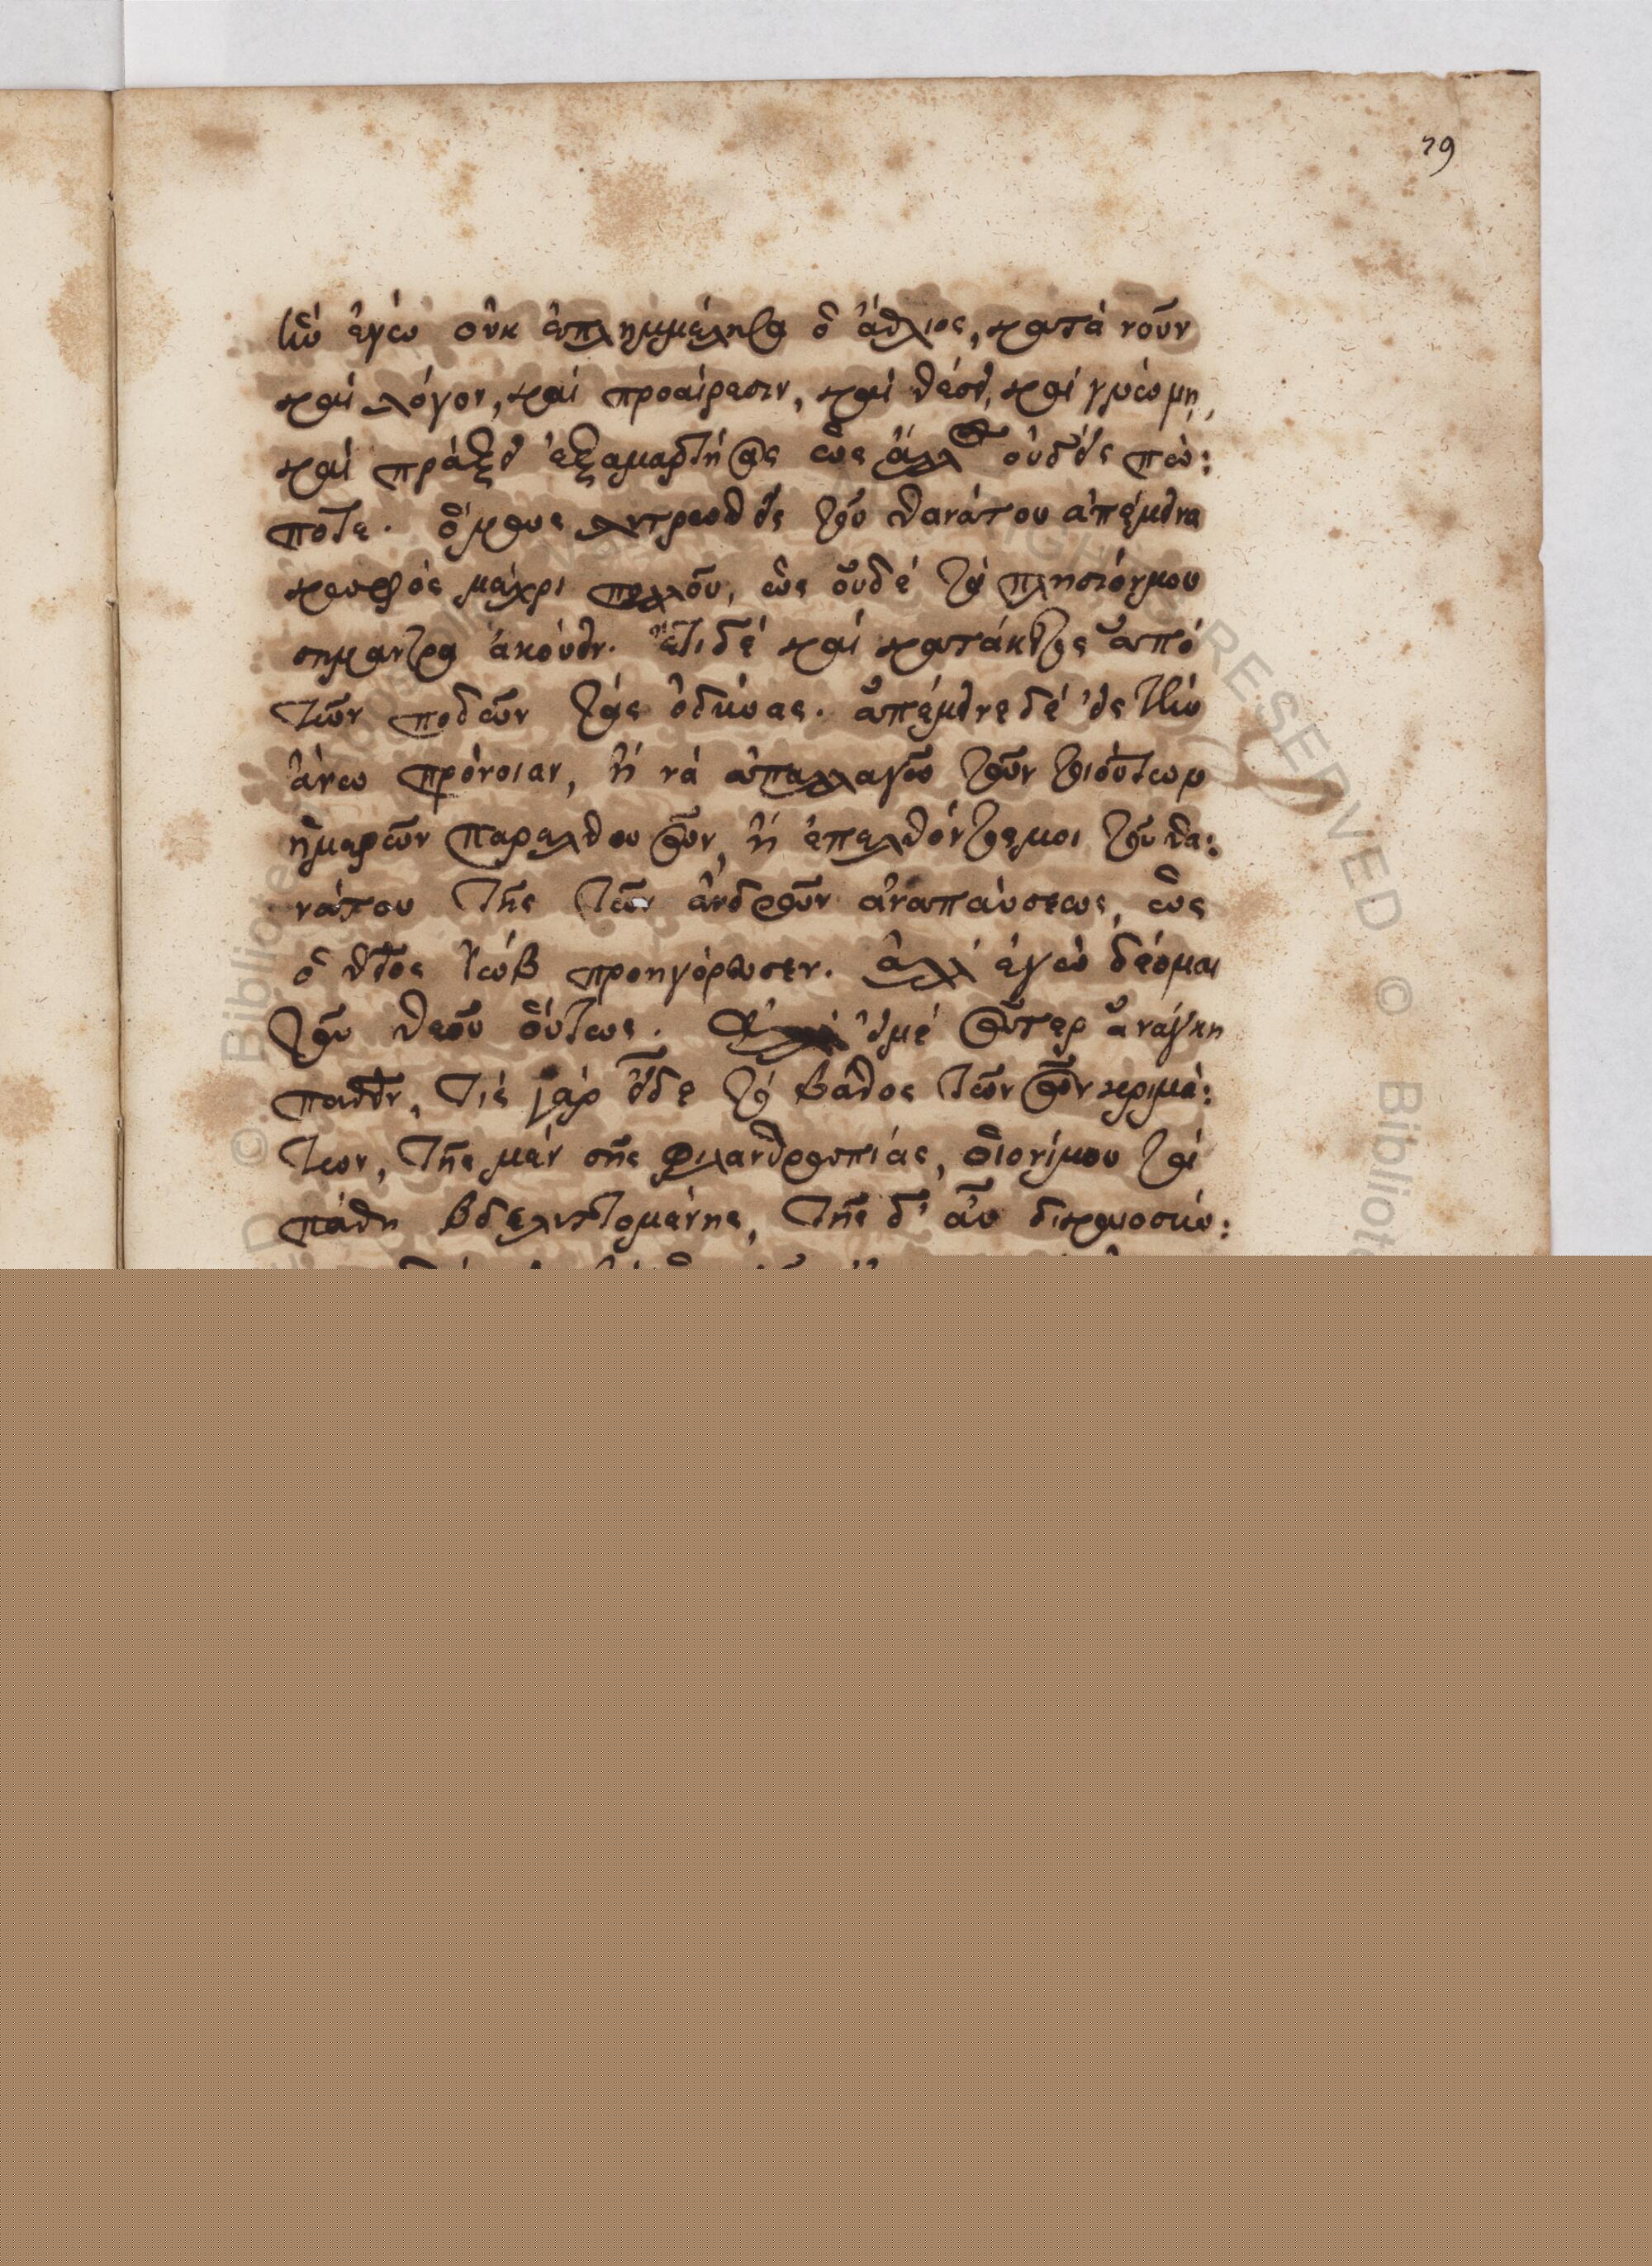 79
ἣν ἐγὼ οὐκ ἐπλημμέλησα ὁ ἄθλιος, κατά νοῦν
καί λόγον, καί προαίρεσιν, καί θέσει, καί γνώμη,
καί πράξει ἐξαμαρτήσας ὡς ἄλλος οὐδείς πώ:
ποτε. ὅμως λυτρωθείς τοῦ θανάτου ἀπέμεινα
κωφός μέχρι πολλοῦ, ὡς οὐδέ τά πλησιόνμου
σημαντρα ἀκούειν. ἔτι δέ καί κατάκοιτος ἀπό
τῶν ποδῶν τάς ὀδύνας. ἀπέμεινε δέ εἰς τήν
ἄνω πρόνοιαν, ἤ νά ἀπαλλαγῶ τῶν τοιούτων
ἡμερῶν παρελθουσῶν, ἤ ἐπελθόντος μοι τοῦ θα:
νάτου τῆς τῶν ἀνδρῶν ἀναπαύσεως, ὡς
ὁ θεῖος Ἰώβ προηγόρευσεν. ἀλλ' ἐγώ δέομαι
τοῦ θεοῦ οὕτως. εἰμέ σῶτερ ἀνάγκη
παθεῖν, τίς γάρ οἶδε τό βάθος τῶν σῶν κριμά:
των, τῆς μέν σῆς φιλανθρωπίας, τά
πάθη βδελυττομένης, τῆς δ' αὖ δικαιοσύ: